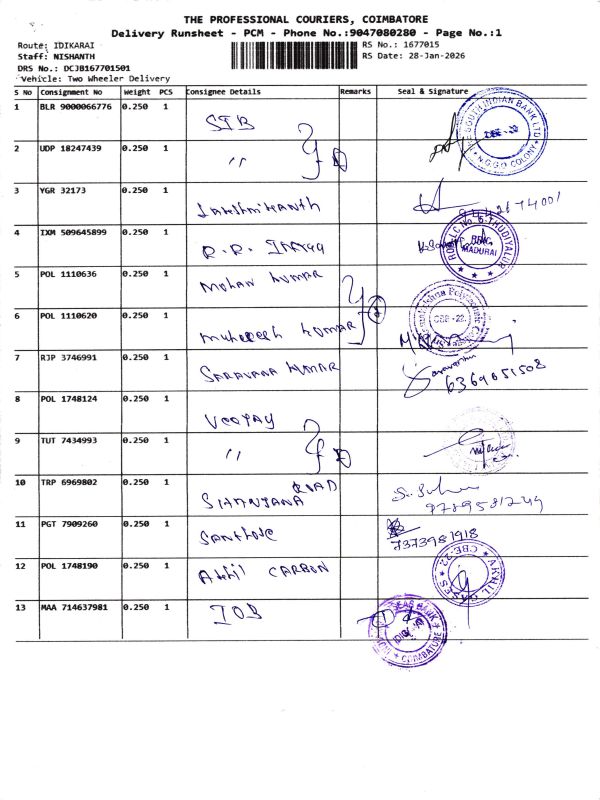 THE PROFESSIONAL COURIERS, COIMBATORE
Delivery Runsheet - PCM - Phone No.:9047080280 - Page No.:1
Route: IDIKARAI
RS No.: 1677015
Staff: NISHANTH
RS Date: 28-Jan-2026
DRS No.: DCJB167701501
Vehicle: Two Wheeler Delivery
S No Consignment No Weight PCS Consignee Details Remarks Seal & Signature
1 BLR 9000066776 0.250 1 SIB
THE SOUTH INDIAN BANK LTD
N.G.G.O COLONY
2 UDP 18247439 0.250 1 "
3 YGR 32173 0.250 1 Lakshmikanth
4 IXM 509645899 0.250 1 R.R.
THUDIYALUR
MADURAI
5 POL 1110636 0.250 1 MOHAN KUMAR
6 POL 1110620 0.250 1 KUMAR
7 RJP 3746991 0.250 1 SARAVANA KUMAR
6369651508
8 POL 1748124 0.250 1
9 TUT 7434993 0.250 1 "
10 TRP 6969802 0.250 1
11 PGT 7909260 0.250 1 SANTHOSE
7373981918
12 POL 1748190 0.250 1 Akhil CARBON
AKHIL GASES
CBE-22
13 MAA 714637981 0.250 1 IOB
COIMBATORE